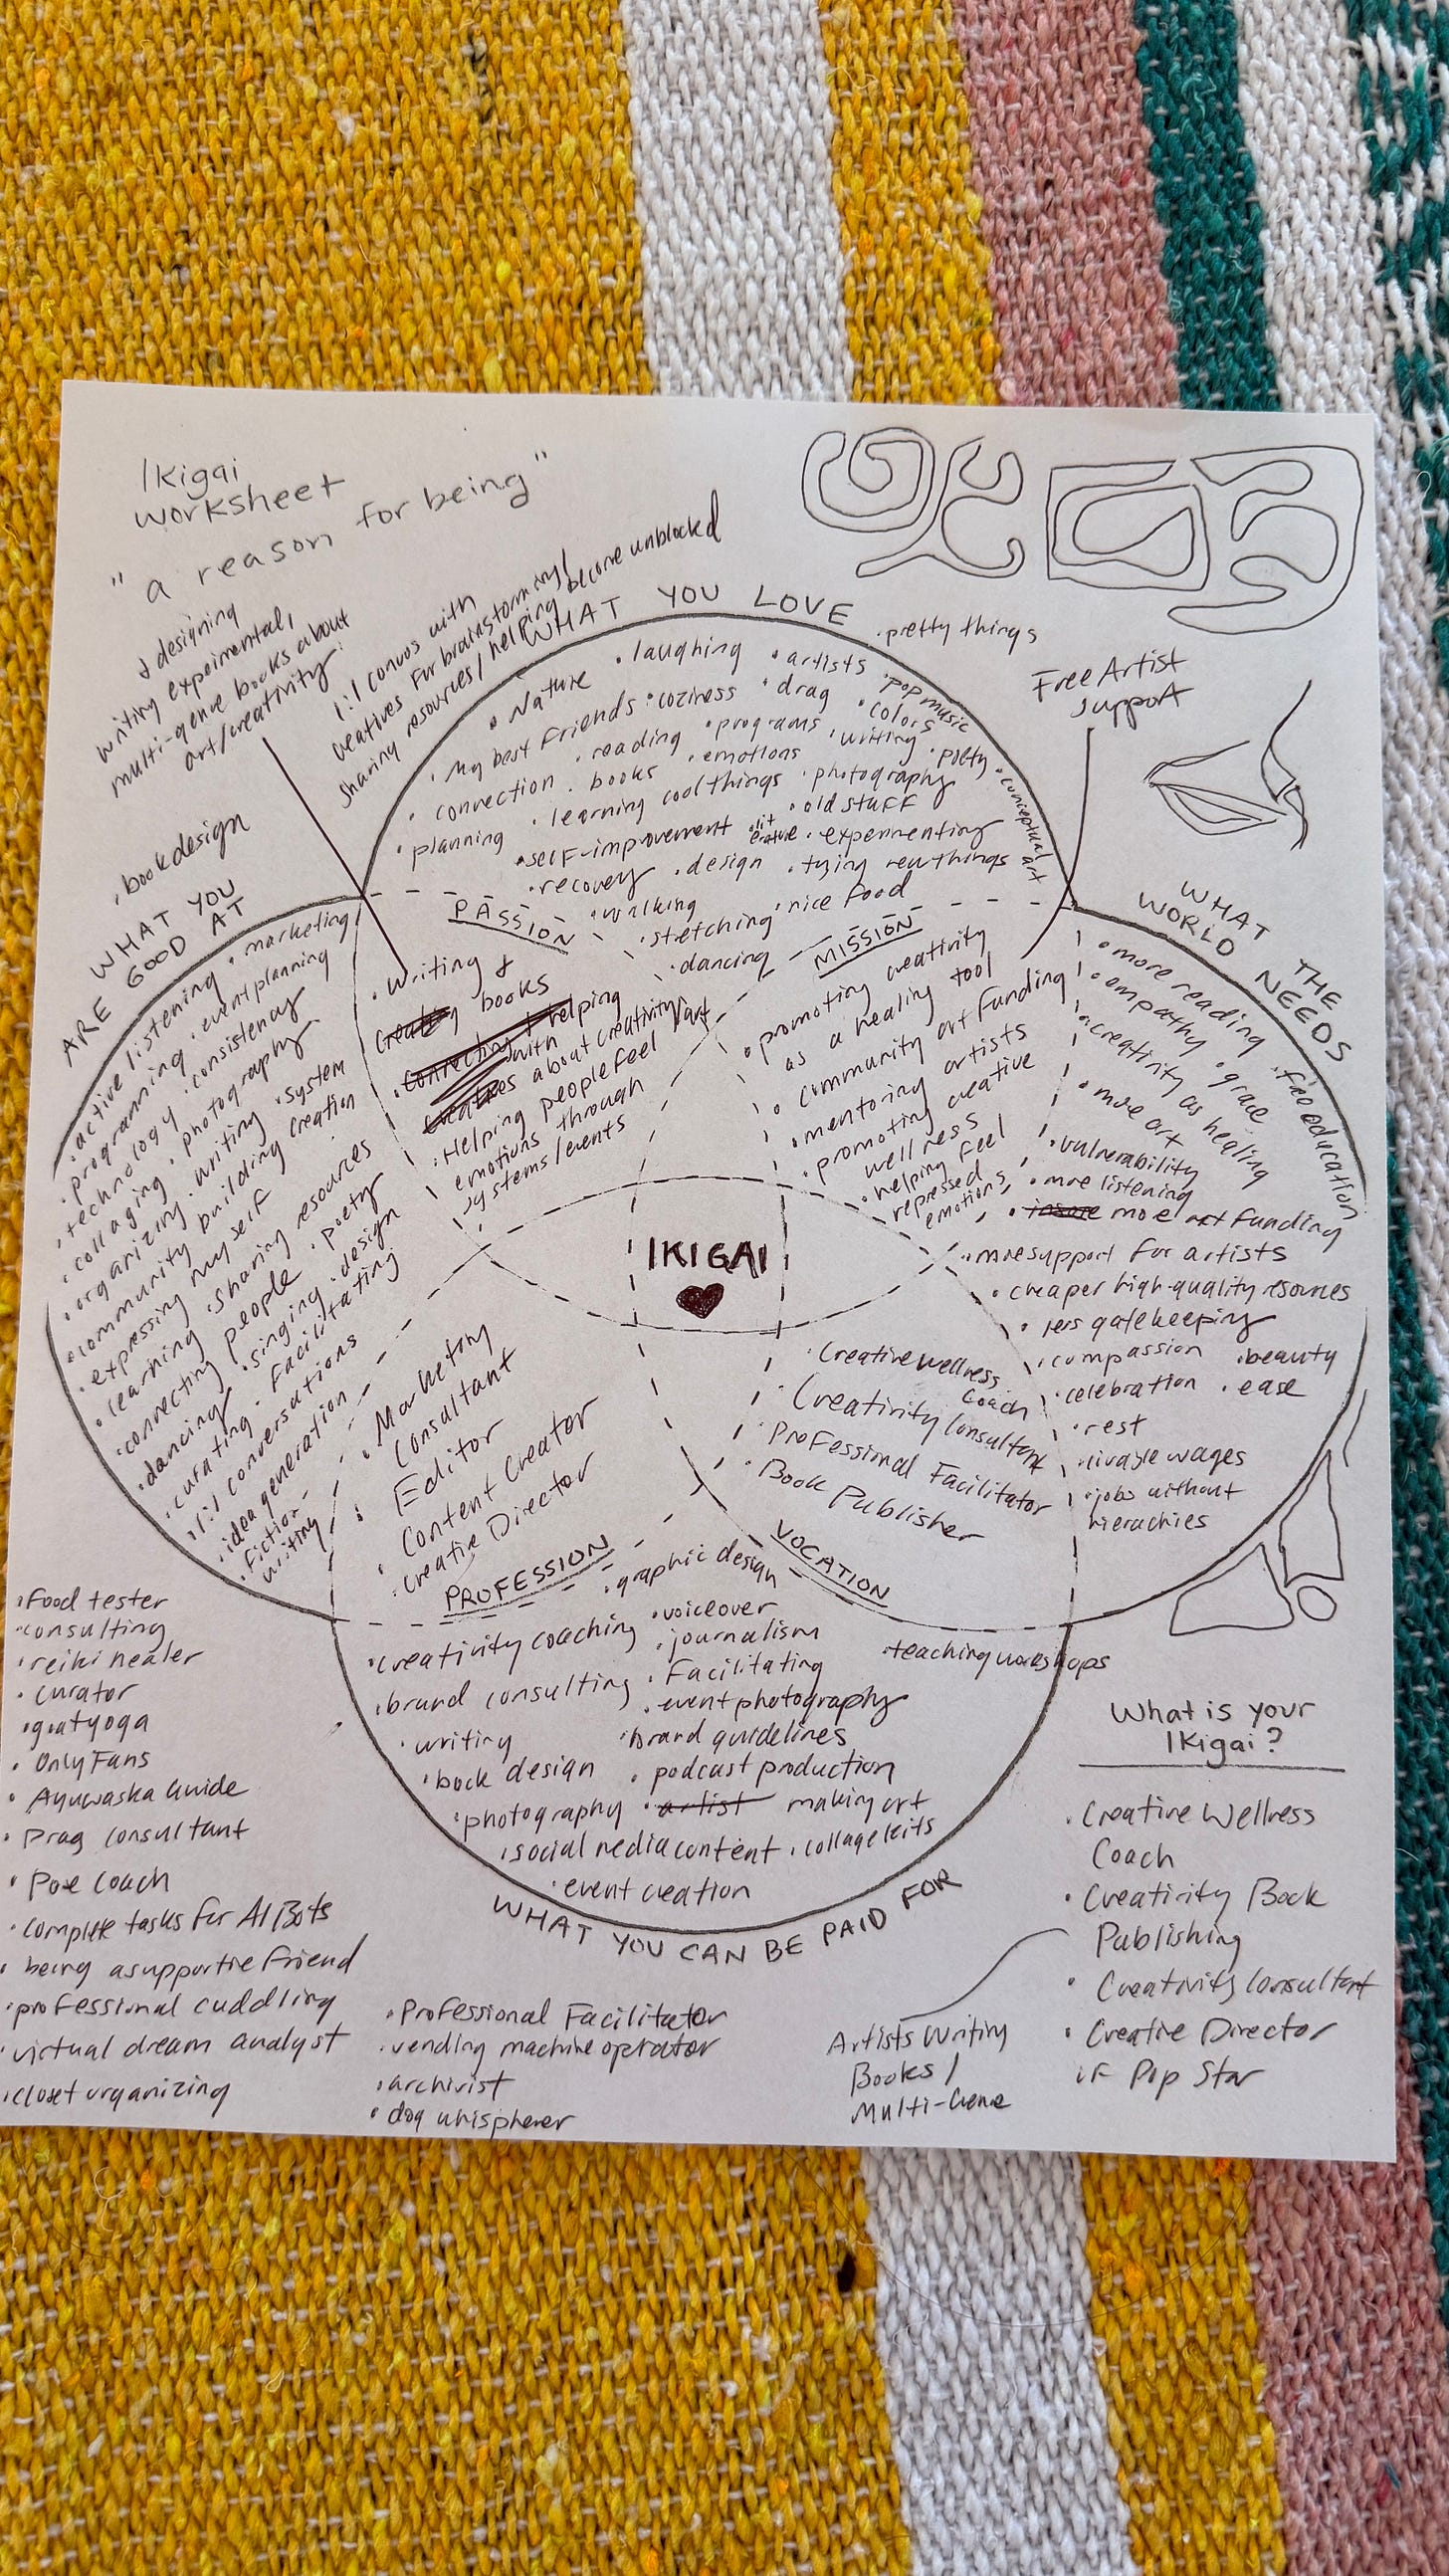 Ikigai
worksheet
"a reason for being"
& designing
writing expeimental,
multi-genre books about
art/creativity.
1:1 convos with
creatives for brainstorming/
sharing resources/helping become unblocked
WHAT YOU LOVE
• pretty things
• Nature • laughing • artists • pop music
• My best friends • coziness • drag • colors
• connection • reading • programs • writing • poety • conceptual art
• books • emotions
• planning • learning cool things • photography
• old stuff
• self-improvement • lit erature • experimenting
• recovery • design • trying new things
• walking • nice food
• stretching
• dancing
Free Artist
support
• book design
WHAT YOU
ARE GOOD AT
• marketing
• active listening • event planning
• programming • consistency
• technology • photography
• collaging • writing • system creation
• organizing
• community building
• expressing myself
• learning • sharing resources
• connecting people • poetry
• dancing • singing • design
• curating • facilitating
• 1:1 conversations
• idea generation
• fiction
writing
PASSION
• Writing &
creating books
• connecting helping
with
creatives about creativity/art
• Helping people feel
emotions through
systems/events
MISSION
• promoting creativity
as a healing tool
• community art funding
• mentoring artists
• promoting creative
wellness
• helping feel
repressed
emotions
WHAT THE
WORLD NEEDS
• more reading
• empathy • free education
• creativity as healing
• grace
• more art
• vulnerability
• more listening
• more art funding
• more support for artists
• cheaper high-quality resources
• less gatekeeping
• compassion • beauty
• celebration • ease
• rest
• livable wages
• jobs without
hierachies
IKIGAI
• Marketing
Consultant
• Editor
• Content Creator
• Creative Director
PROFESSION
• Creative wellness
Coach
• Creativity Consultant
• Professional Facilitator
• Book Publisher
VOCATION
• graphic design
• creativity coaching • voiceover
• journalism
• brand consulting • Facilitating
• event photography
• writing • brand guidelines
• book design • podcast production
• photography • artist making art
• social media content • collage kits
• event creation
• teaching workshops
WHAT YOU CAN BE PAID FOR
• Food tester
• consulting
• reiki healer
• curator
• goat yoga
• OnlyFans
• Ayuwaska Guide
• Drag consultant
• Pose Coach
• complete tasks for AI Bots
• being a supportive friend
• professional cuddling
• virtual dream analyst
• closet organizing
• Professional Facilitator
• vending machine oprator
• archivist
• dog whispherer
What is your
Ikigai?
• Creative Wellness
Coach
• Creativity Book
Publishing
• Creativity Consultant
• Creative Director
of Pop Star
Artists Writing
Books/
Multi-Genre